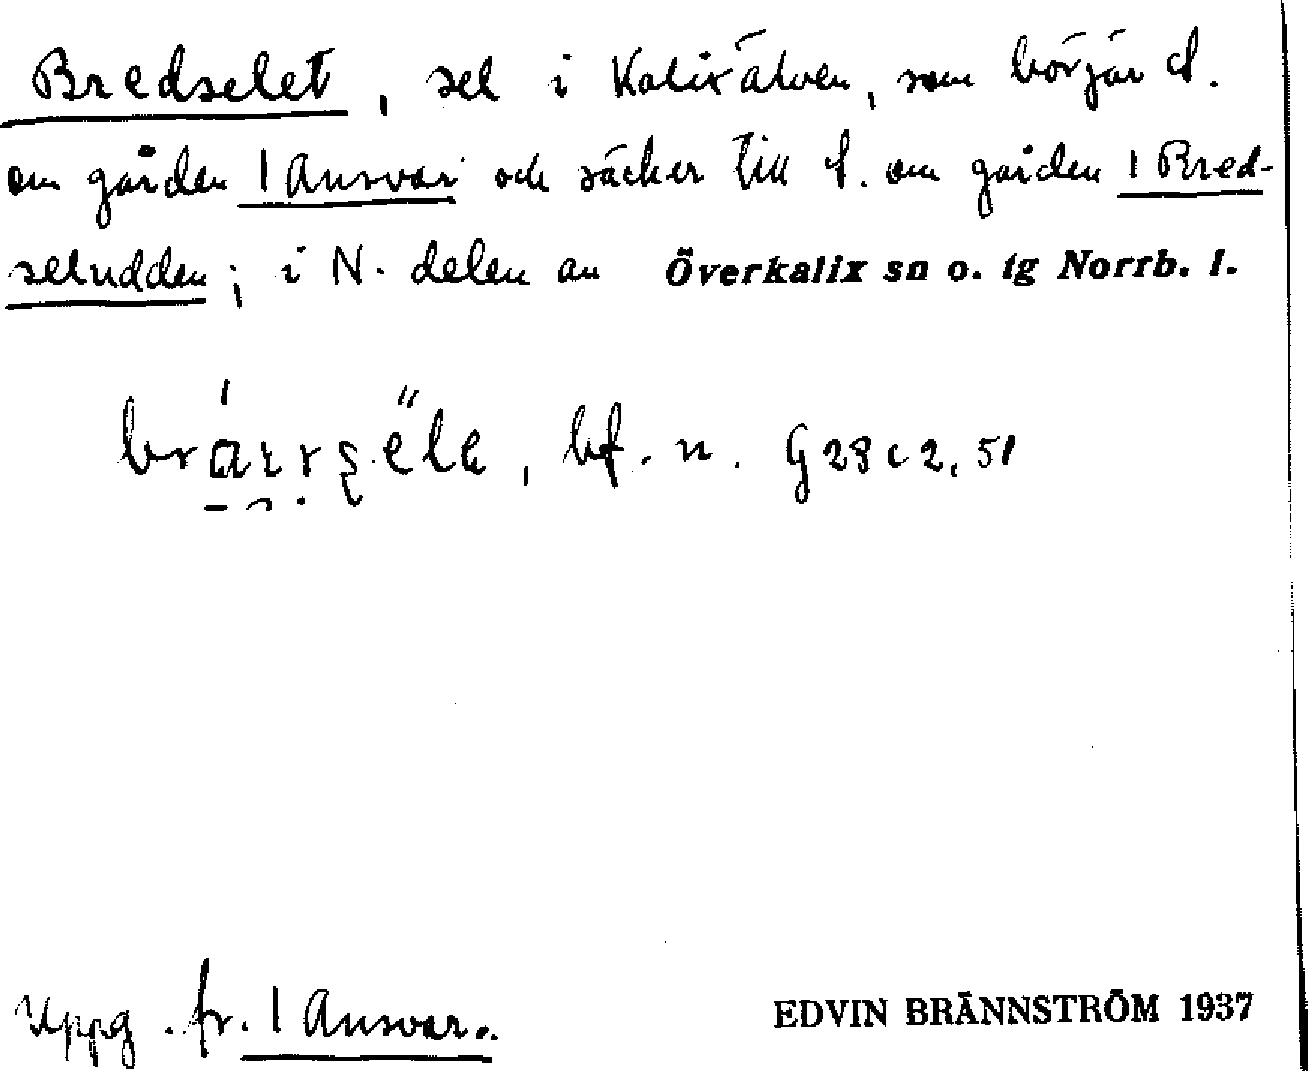 Bredselet, sel i Kalixälven, som börjar S.
om gården 1 Ansvar och räcker till S. om gården 1 Bred-
seludden; i N. delen av Överkalix sn o. tg Norrb. l.
bf. n. G 28 c 2, 51
Uppg. fr. 1 Ansvar.
EDVIN BRÄNNSTRÖM 1937